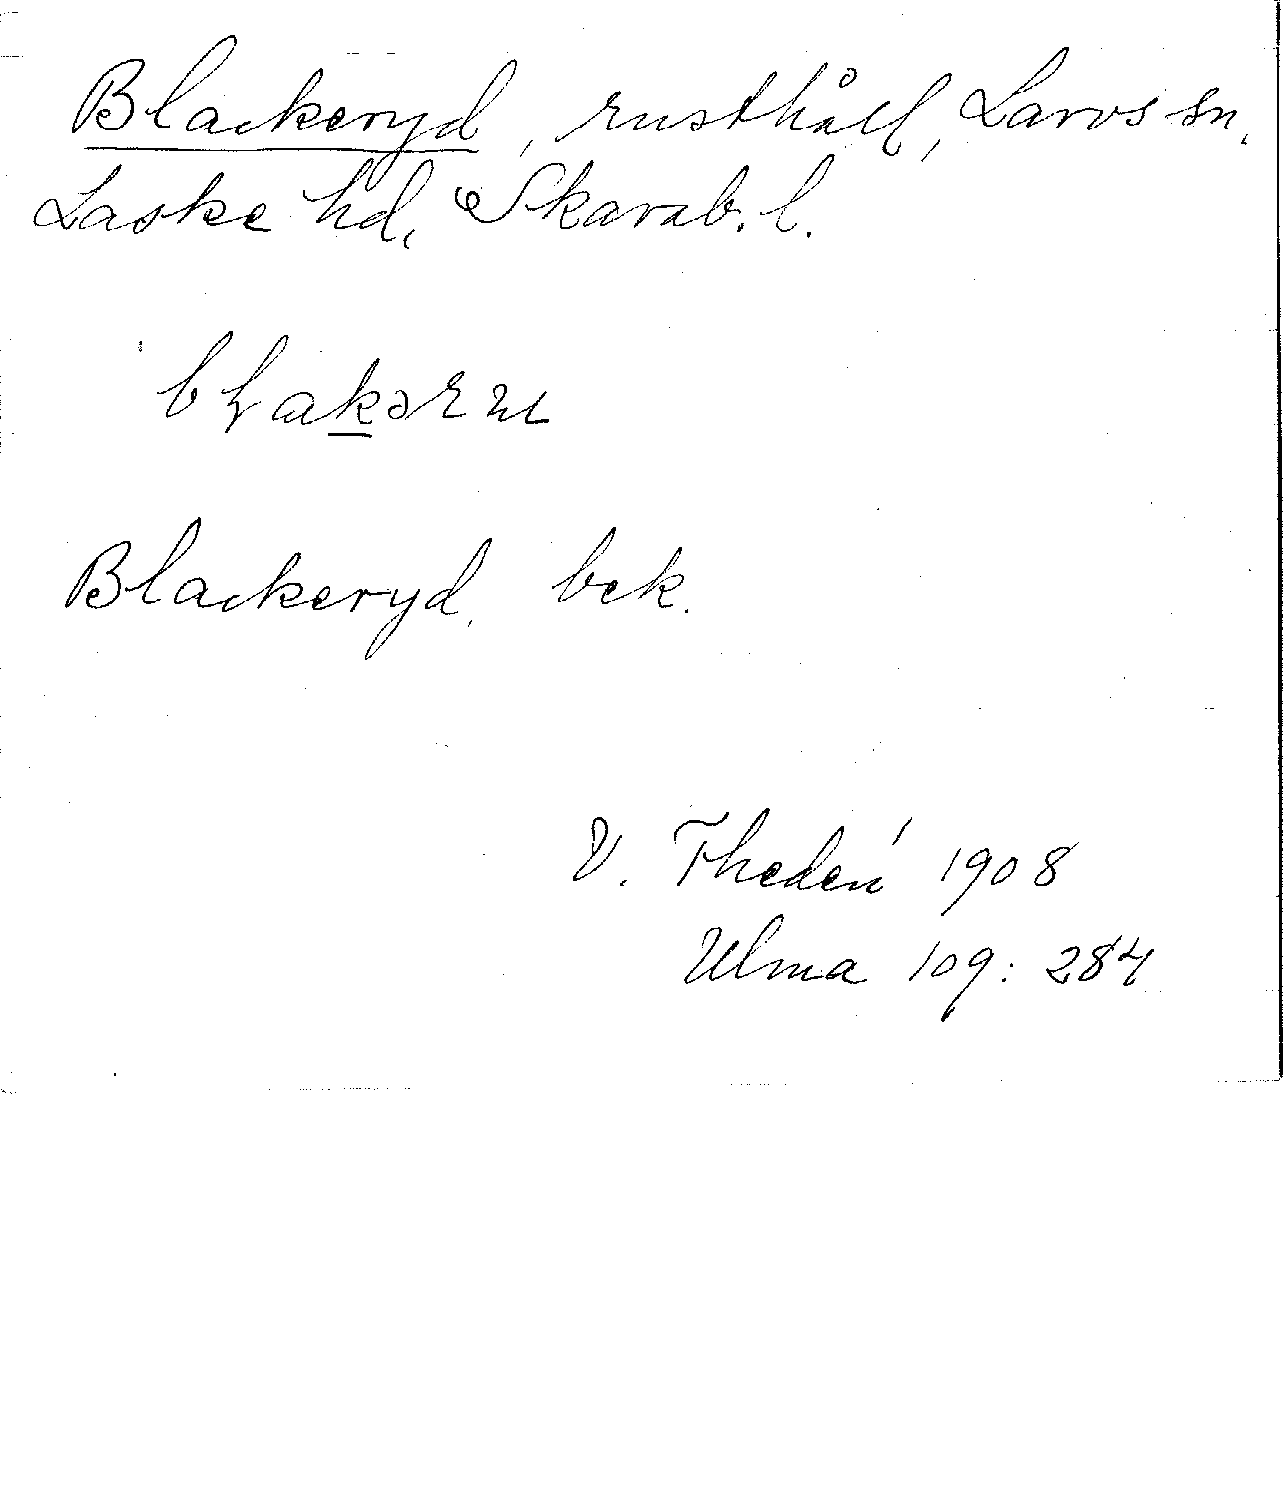 Blackeryd, rusthåll, Larvs sn,
Laske hd, Skarab. l.
Blackeryd, bek.
V. Thedén 1908
Ulma 109: 284